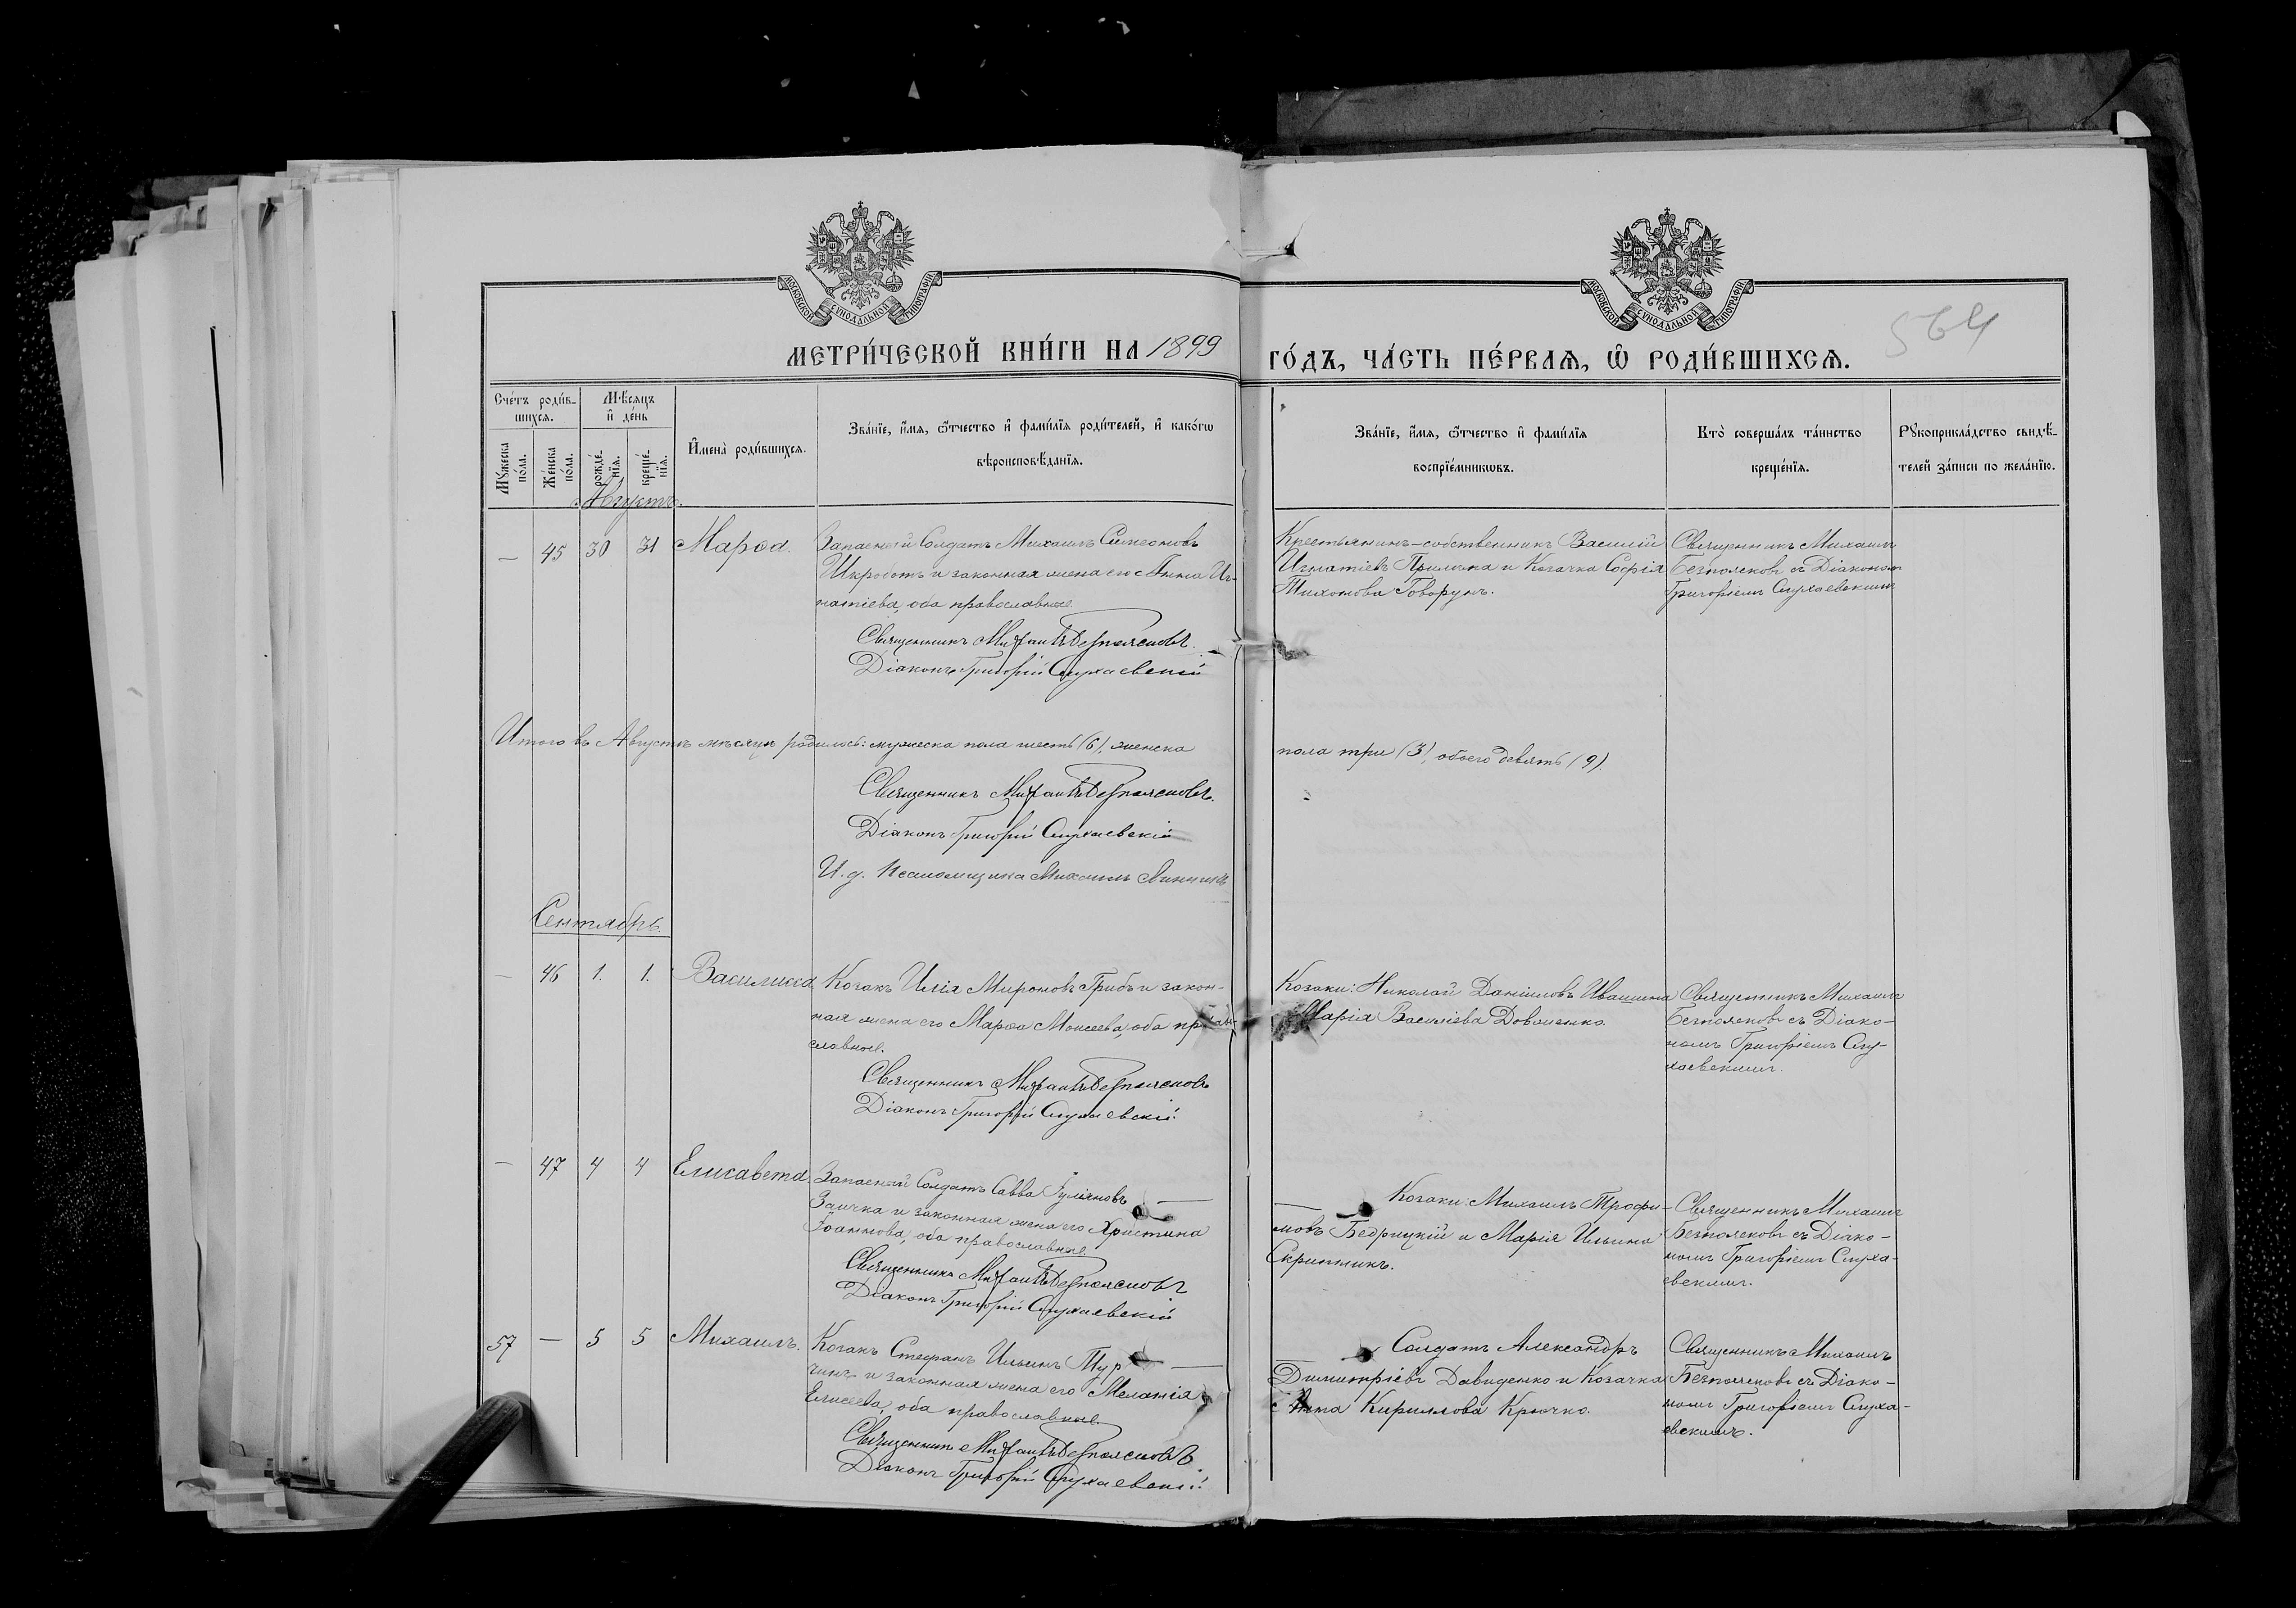 МОСКОВСКОЙ СѴНОДАЛЬНОЙ ТИПОГРАФІИ
МОСКОВСКОЙ СѴНОДАЛЬНОЙ ТИПОГРАФІИ
564
МЕТРИ́ЧЕСКОЙ КНИ́ГИ НА 1899 ГО́ДЪ, ЧА́СТЬ ПЕ́РВАѦ, Ѡ҆ РОДИ́ВШИХСѦ.
Сче́тъ роди́в-
шихся.
Мѣ́сяцъ
и҆ де́нь
Мꙋ́жеска
по́ла.
Же́нска
по́ла.
рожде́-
нїѧ.
креще́-
нїѧ.
И҆мена̀ роди́вшихсѧ.
Зва́нїе, и҆́мѧ, ѻ҆́тчество и҆ фами́лїѧ роди́телей, и҆ како́гѡ
вѣроисповѣ́данїѧ.
Зва́нїе, и҆́мѧ, ѻ҆́тчество и҆ фами́лїѧ
воспрїе́мникѡвъ.
Кто̀ соверша́лъ та́инство
креще́нїѧ.
Рꙋкоприкла́дство свидѣ́-
телей за́писи по жела́нїю.
Августъ.
— 45 30 31 Марѳа.
Запасный Солдатъ Михаилъ Симеоновъ
Шкроботъ и законная жена его Анна Иг-
натіева, оба православные.
Священникъ Михаилъ Безпоясновъ.
Діаконъ Григорій Слухаевскій
Крестьянинъ-собственникъ Василій
Игнатіевъ Прилипка и Козачка Софія
Тихонова Говорунъ.
Священникъ Михаилъ
Безпоясновъ съ Діакономъ
Григоріемъ Слухаевскимъ
Итого въ Августѣ мѣсяцѣ родилось: мужеска пола шесть (6), женска пола три (3), обоего девять (9).
Священникъ Михаилъ Безпоясновъ.
Діаконъ Григорій Слухаевскій
И. д. Псаломщика Михаилъ
Сентябрь.
— 46 1. 1. Василисса
Козакъ Илія Мироновъ Грибъ и закон-
ная жена его Марѳа Моисеева, оба право-
славные.
Священникъ Михаилъ Безпоясновъ
Діаконъ Григорій Слухаевскій.
Козаки: Николай Даніиловъ Ивашена
Марія Василіева Доваленко.
Священникъ Михаилъ
Безпоясновъ съ Діако-
номъ Григоріемъ Слу-
хаевскимъ.
— 47 4 4 Елисавета.
Запасный Солдатъ Савва Іуліановъ
Заичка и законная жена его Христина
Іоаннова, оба православные.
Священникъ Михаилъ Безпоясновъ
Діаконъ Григорій Слухаевскій
Козаки: Михаилъ Трофи-
мовъ Бедрицкій и Марія Ильина
Скрипникъ.
Священникъ Михаилъ
Безпоясновъ съ Діако-
номъ Григоріемъ Слуха-
евскимъ.
57 — 5 5 Михаилъ.
Козакъ Стефанъ Ильинъ Тур-
чинъ и законная жена его Меланія
Елисеева, оба православные.
Священникъ Михаилъ Безпоясновъ
Діаконъ Григорій Слухаевскій.
Солдатъ Александръ
Димитріевъ Давиденко и Козачка
Анна Кириллова Крючко.
Священникъ Михаилъ
Безпоясновъ съ Діако-
номъ Григоріемъ Слуха-
евскимъ.